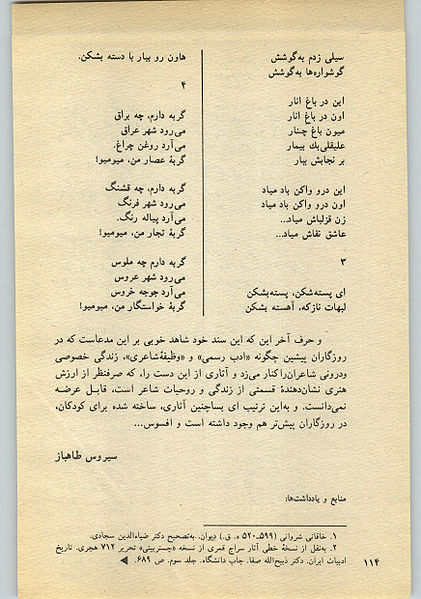 سیلی زدم به‌گوشش
گوشواره‌ها به‌گوشش
این در باغ انار
اون در باغ انار
میون باغ چنار
علیقلی‌بك بیمار
بر نجابش بیار
این درو واکن باد میاد
اون درو واکن باد میاد
زن قزلباش میاد...
عاشق نقاش میاد...
۳
ای پسته‌شکن، پسته‌بشکن
لبهات نازکه، آهسته بشکن
هاون رو بیار با دسته بشکن.
۴
گربه دارم، چه براق
می‌رود شهر عراق
می‌آرد روغن چراغ.
گربهٔ عصار من، میومیو!
گربه دارم، چه قشنگ
می‌رود شهر فرنگ
می‌آرد پیاله رنگ.
گربهٔ نجار من، میومیو!
گربه دارم چه ملوس
می‌رود شهر عروس
می‌آرد جوجه خروس
گربهٔ خواستگار من، میومیو!
و حرف آخر این که این سند خود شاهد خوبی بر این مدعاست که در
روزگاران پیشین چگونه «ادب رسمی» و «وظیفهٔ شاعری»، زندگی خصوصی
ودرونی شاعران‌را کنار می‌زد و آثاری از این دست را، که صرفنظر از ارزش
هنری نشان‌دهندهٔ قسمتی از زندگی و روحیات شاعر است، قابل عرضه
نمی‌دانست. و به‌این ترتیب ای بساچنین آثاری، ساخته شده برای کودکان،
در روزگاران پیش‌تر هم وجود داشته است و افسوس...
سیروس طاهباز
منابع و یادداشت‌ها:
۱. خاقانی شروانی (۵۹۹ـ۵۲۰ ه‍. ق.) دیوان. به‌تصحیح دکتر ضیاءالدین سجادی.
۲. به‌نقل از نسخهٔ خطی آثار سراج قمری از نسخه «چستربیتی» تحریر ۷۱۲ هجری. تاریخ
ادبیات ایران. دکتر ذبیح‌الله صفا. چاپ دانشگاه. جلد سوم. ص ۶۸۹.
۱۱۴